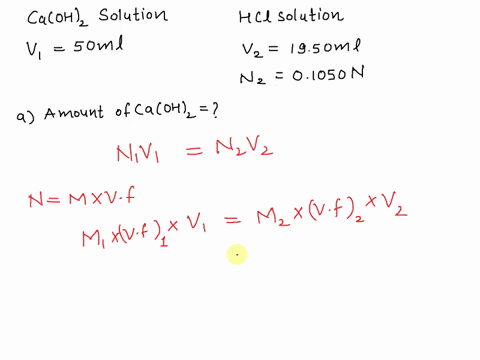 Ca(OH)₂ Solution
V₁ = 50ml
HCl solution
V₂ = 19.50ml
N₂ = 0.1050 N
a) Amount of Ca(OH)₂ = ?
N₁V₁ = N₂V₂
N = M × V.f
M₁ × (V.f)₁ × V₁ = M₂ × (V.f)₂ × V₂